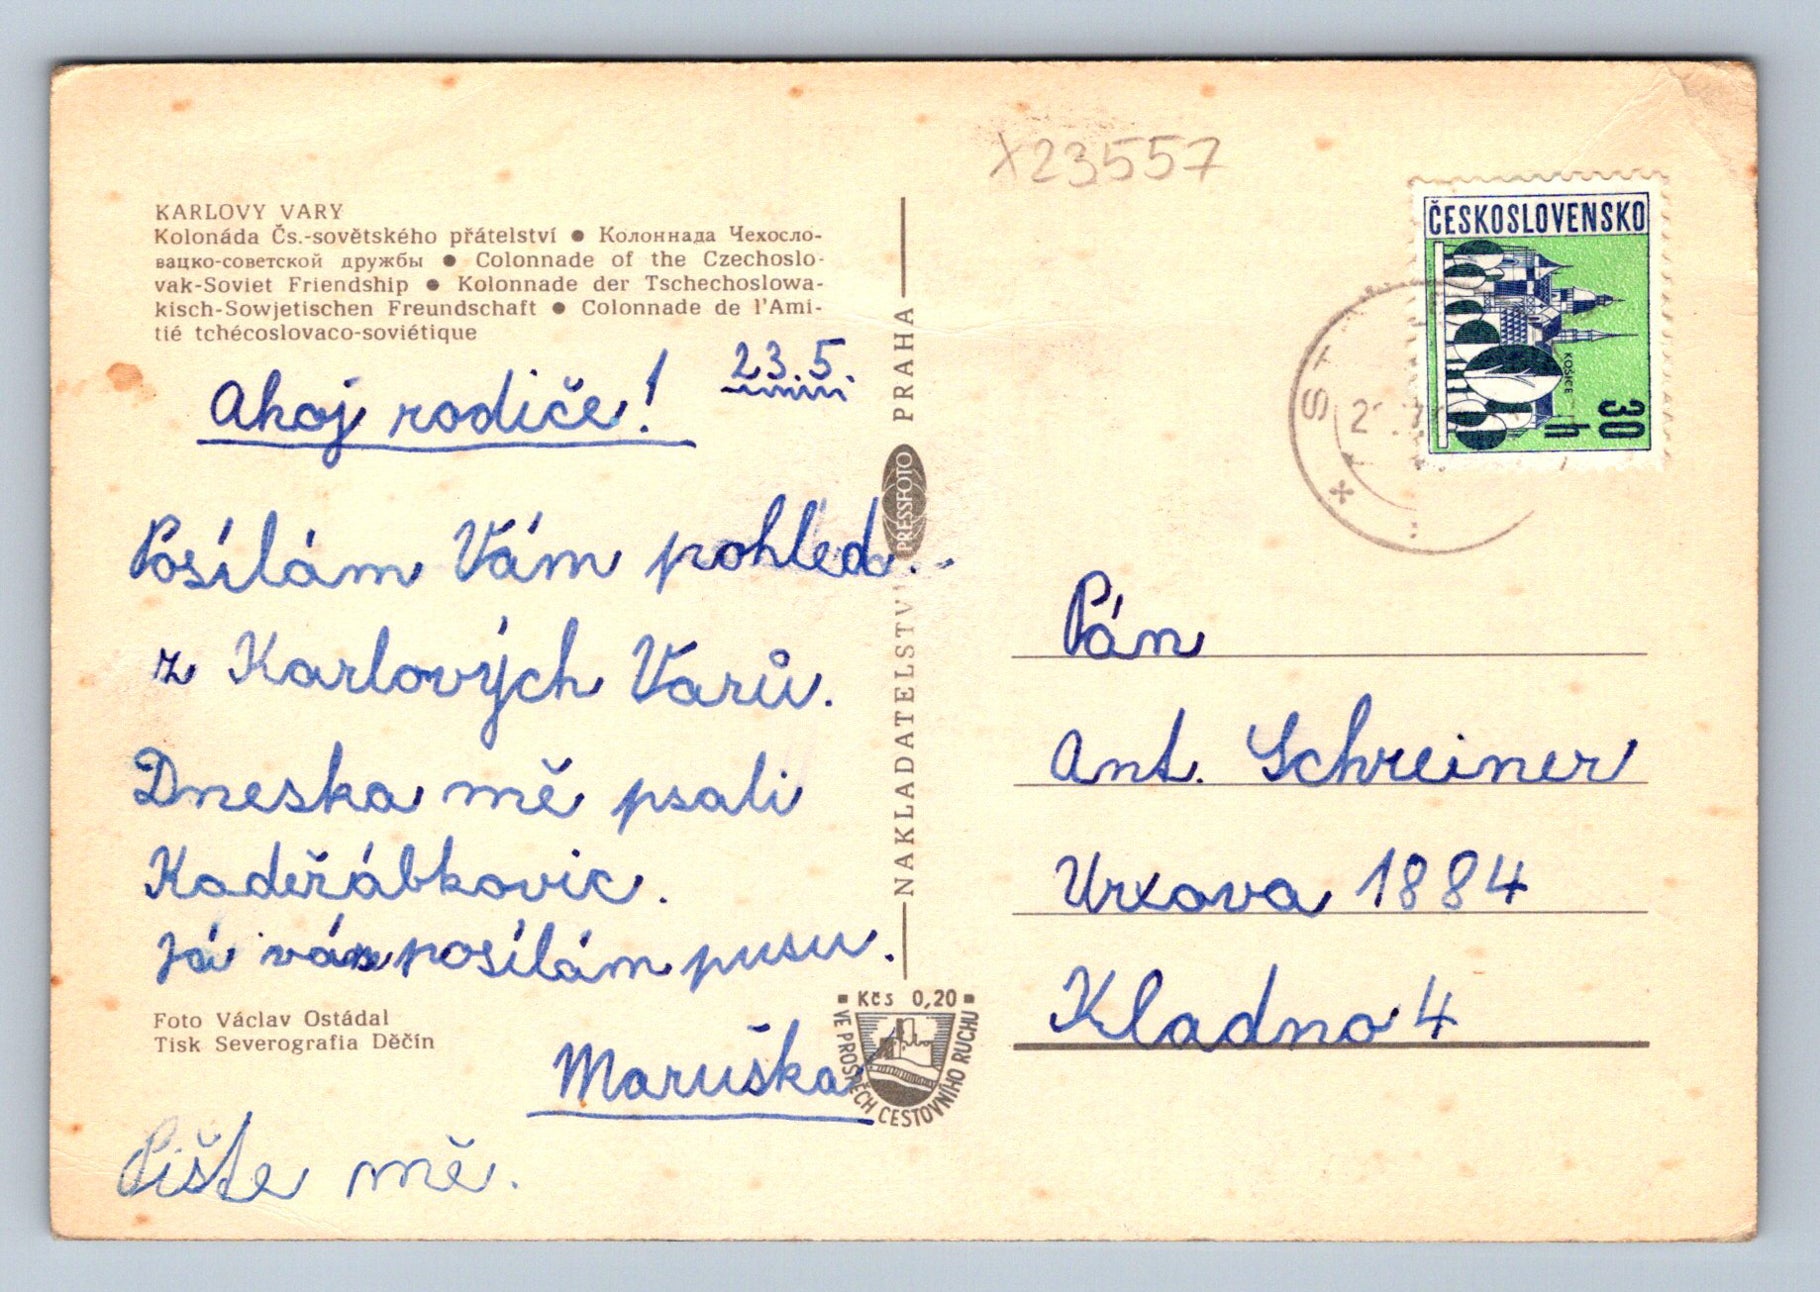 X23557
KARLOVY VARY
Kolonáda Čs.-sovětského přátelství ● Колоннада Чехосло-
вацко-советской дружбы ● Colonnade of the Czechoslo-
vak-Soviet Friendship ● Kolonnade der Tschechoslowa-
kisch-Sowjetischen Freundschaft ● Colonnade de l'Ami-
tié tchécoslovaco-soviétique
23. 5.
Ahoj rodiče!
Posílám Vám pohled..
z Karlových Varů.
Dneska mě psali
Kadeřábkovic.
Já vám posílám pusu.
Foto Václav Ostádal
Tisk Severografia Děčín
Maruška
Pište mě.
NAKLADATELSTVÍ PRESSFOTO PRAHA
Kčs 0,20
VE PROSPĚCH CESTOVNÍHO RUCHU
ČESKOSLOVENSKO
KOŠICE
30 h
Pán
Ant. Schreiner
Urxova 1884
Kladno 4